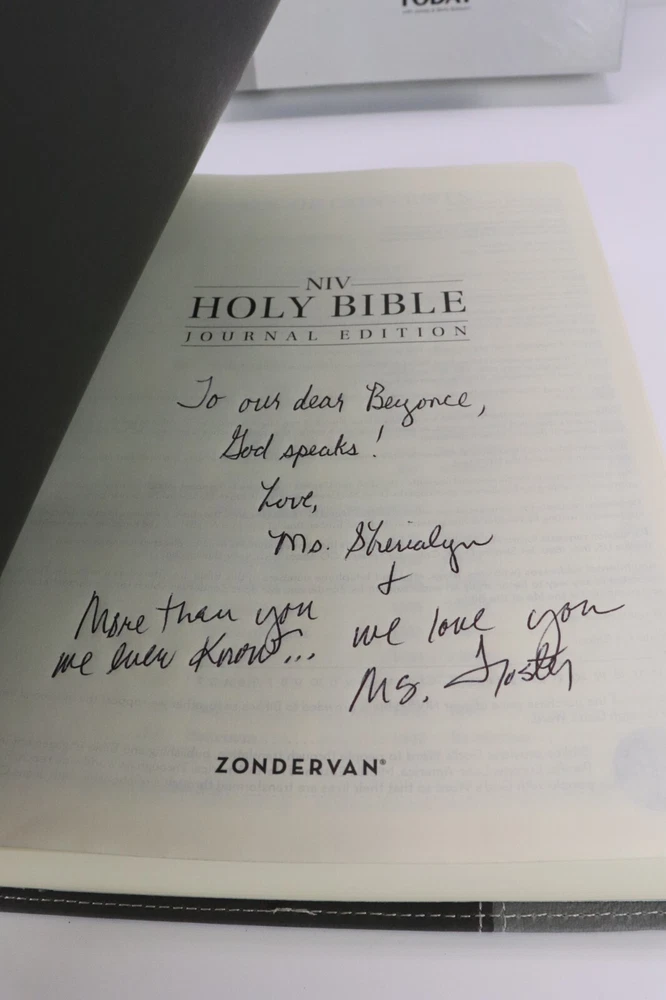 TODAY
NIV
HOLY BIBLE
JOURNAL EDITION
To our dear Beyonce,
God speaks!
Love,
Ms. Sherialyn
+
we love you
More than you
we ever know...
Ms. Foster
ZONDERVAN®